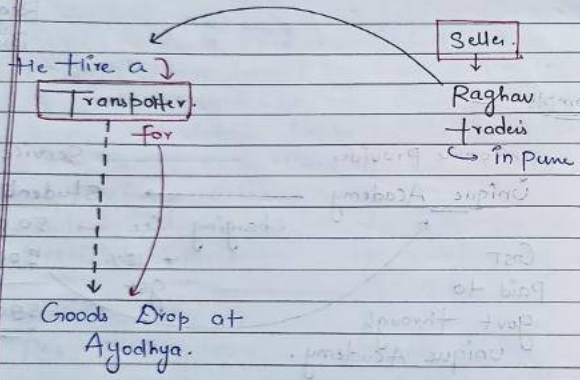 Seller.
Raghav
traders
in pune
He Hire a
Transporter.
for
Goods Drop at
Ayodhya.